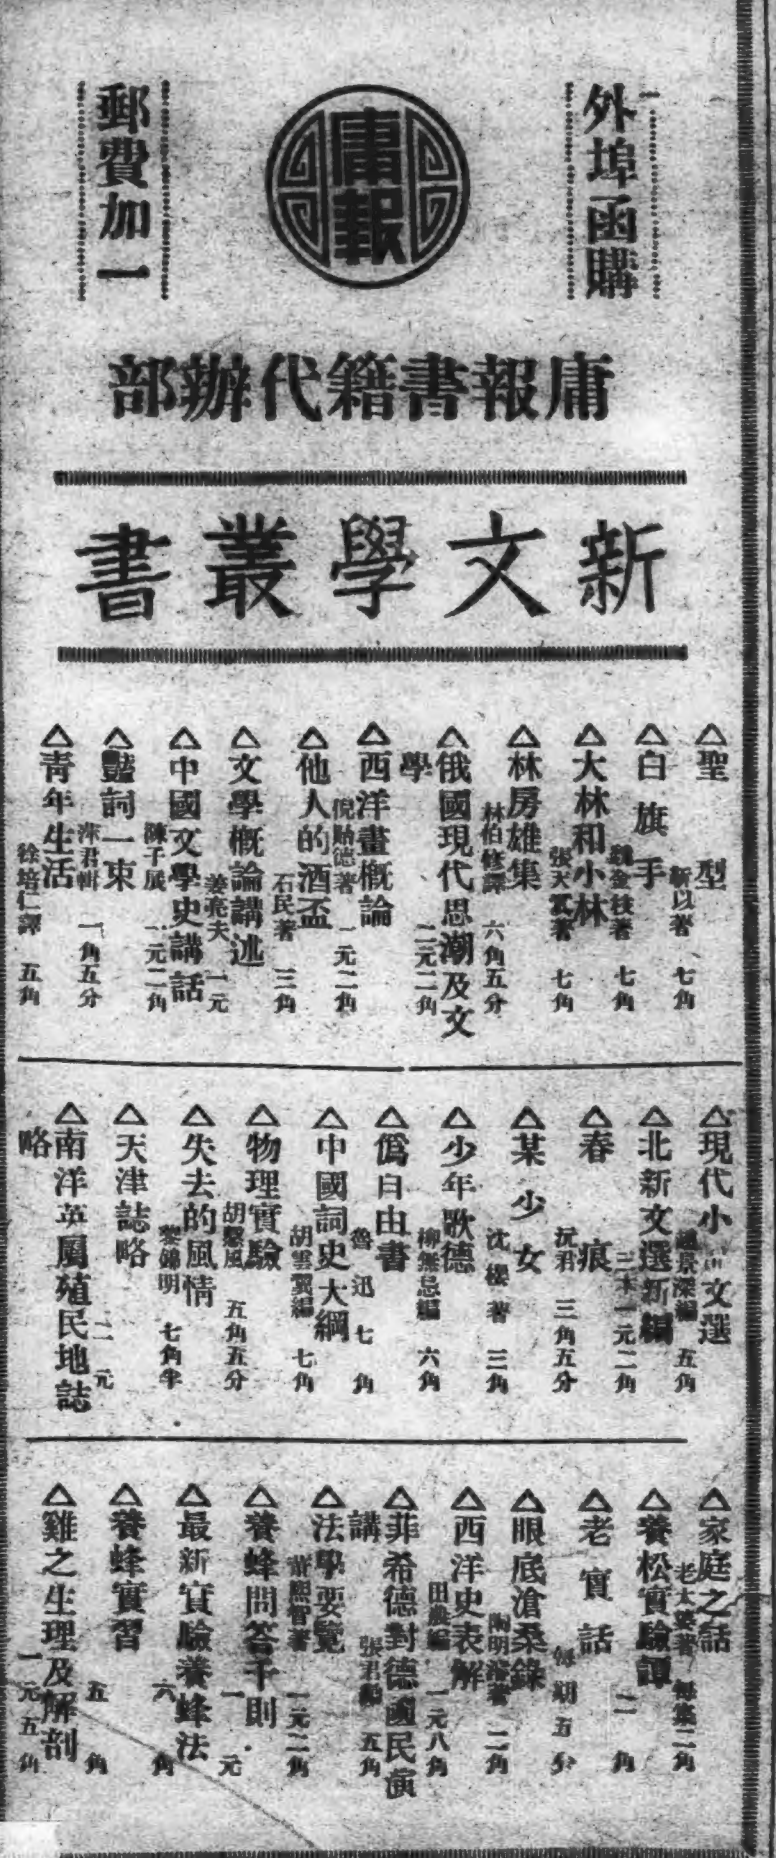 外埠函購
庸報
郵費加一
庸報書籍代辦部
新文學叢書
△聖型
靳以著 七角
△白旗手
魏金枝著 七角
△大林和小林
張天翼著 七角
△林房雄集
林伯修譯 六角五分
△俄國現代思潮及文學
二元二角
△西洋畫概論
倪貽德著 一元二角
△他人的酒盃
石民著 三角
△文學概論講述
姜亮夫 一元
△中國文學史講話
陳子展 一元二角
△豔詞一束
萍君輯 一角五分
△青年生活
徐培仁譯 五角
△現代小品文選
趙景深編 五角
△北新文選新編
三本一元二角
△春痕
沅君 三角五分
△某少女
沈櫻著 三角
△少年歌德
柳無忌編 六角
△僞自由書
魯迅 七角
△中國詞史大綱
胡雲翼編 七角
△物理實驗
胡愨風 五角五分
△失去的風情
黎錦明 七角半
△天津誌略
二元
△南洋英屬殖民地誌略
△家庭之話
老太婆著 每集二角
△養松實驗譚
二角
△老實話
每期五分
△眼底滄桑錄
陶明濬著 二角
△西洋史表解
田農編 一元八角
△菲希德對德國民演講
張君勱 五角
△法學要覽
熙智著 一元二角
△養蜂問答千則
一元
△最新實驗養蜂法
六角
△養蜂實習
五角
△雞之生理及解剖
一元五角